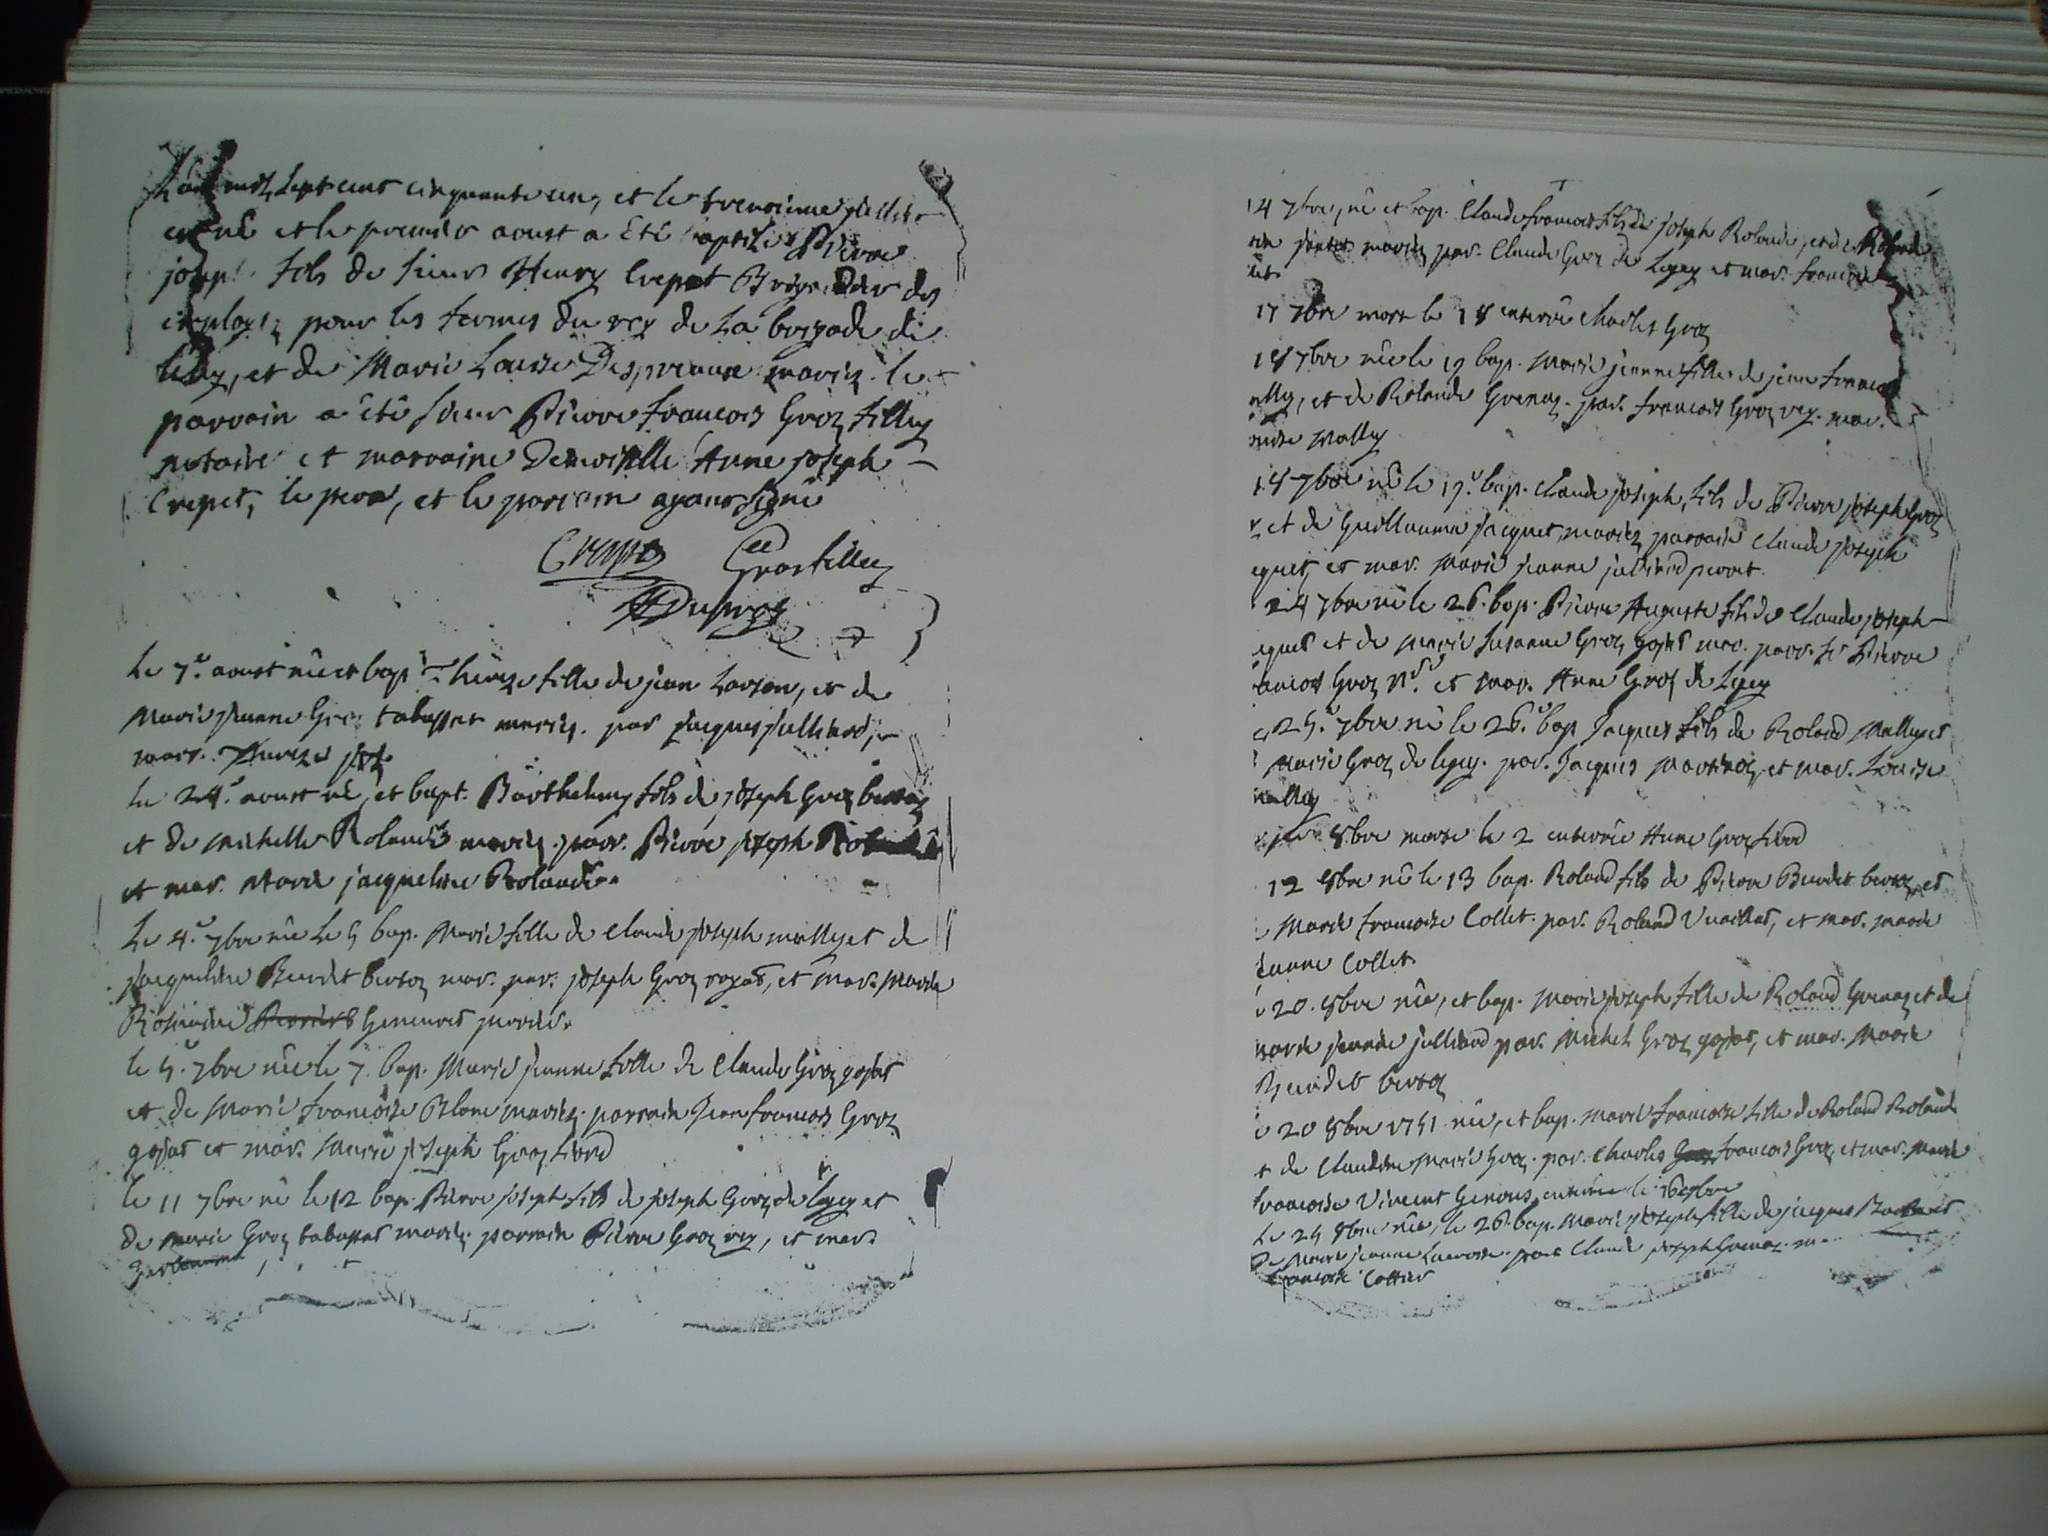 L'an mil sept cens cinquante un, et le trensieme juillet
est né et le premier aoust a été baptisé Pierre
joseph fils de sieur Henry Crepet Brigadier des
employez pour les fermes du roy de La brigade de
et de Marie Louise Despreaux mariez. le
parrain a été sieur Pierre francois Groz tilly
notaire et marraine Demoiselle Anne joseph
Crepet, le pere, et le parrain ayans signé
Crepet Grostilly
le 7.e aoust née et bap. Thereze fille de jean Lavson, et de
Marie jeanne Groz tabussat mariez. par jacques julliard,
marr. Thereze
le 24.e aoust né, et bapt. Barthelemy fils de joseph Groz
et de michelle Rolande mariez. parr. Pierre joseph
et mar. Marie jacqueline Rolande
Le 4.e 7bre née Le 5 bap. Marie fille de claude joseph mally et de
jacqueline Benoit mar. par. joseph Groz gojat, et mar. Marie
le 5.e 7bre née le 7 bap. Marie jeanne fille de Claude Groz gojat
et de Marie francoise Blanc mariez. parrain Jean francois Groz
gojat et mar. Marie joseph Groz
le 11 7bre né le 12 bap. Pierre joseph fils de joseph Groz de legey et
de marie Groz tabussat mariez. parrain Pierre Groz rey, et mar.
14 7bre, né et bap. Claude francois fils de joseph Rolande, et de
mariez par. Claude Groz de Legey et mar. francoise
17 7bre mort le 18 enterré charles Groz
18 7bre née le 19 bap. Marie jeanne fille de jean francois
ally, et de Rolande Grenaz. par. francois Groz rey. mar.
Mally
18 7bre né le 19.e bap. Claude joseph, fils de Pierre joseph Groz
et de Guillauma jacquet, mariez parrain claude joseph
quet, et mar. Marie jeanne julliard
24 7bre né le 26. bap. Pierre Auguste fils de Claude joseph
et de Marie Susanne Groz gojat mar. parr. Sr Pierre
ancois Groz et mar. Anne Groz de Legey
25.e 7bre né le 26.e bap. Jacques fils de Roland Mally et
Marie Groz de legey. par. Jacques Martinez, et mar. Louise
mally
8bre morte le 2 enterrée Anne Groz
12 8bre né le 13 bap. Roland fils de Pierre Benoit et
Marie francoise Collet. par. Roland Vuaillat, et mar. marie
jeanne Collet
20. 8bre née, et bap. Marie joseph fille de Roland Grenaz et de
marie jeanne julliard par. Michel Groz gojat, et mar. Marie
Benoit
20 8bre 1751 née, et bap. marie francoise fille de Roland Rolande
et de Claudine Marie Groz. par. charles francois Groz, et mar. Marie
francoise Vincent Genous enterrée le
Le 25 8bre née, le 26. bap. Marie joseph fille de jacques
De Marie jeanne par. Claude joseph Grenaz.
francoise Cottier